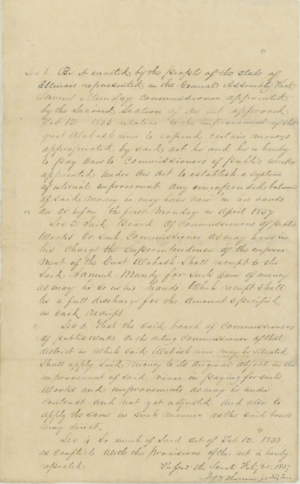 Sec 1. Be it enacted by the people of the state of
Illinois represented in the General Assembly That
Samuel Munday commissioner appointed
by the second section of An act approved
Feb 12. 1835 relative to the improvement of the
great Wabash river to expend certain moneys
appropriated by said act be and he is hereby
to pay over to Commissioners of public works
appointed under An act to establish a system
of internal improvement any unexpended balance
of said money as may be now in his hands
on or before the first Monday in April 1837
Sec 2. Said board of Commissioners of public
Works or such Commissioner as may have in
his charge the superintendence of the improve-
ment of the Great Wabash shall receipt to the
said Samuel Munday for such sum of money
as may be so in his hands Which receipt shall
be a full discharge for the amount specified
in such receipt
Sec 3. That the said board of Commissioners
of public works or the acting Commissioner of that
district in which said Wabash river may be situated
shall apply said money to its original object in the
improvement of said river in paying for such
works and improvements as may be under
contract and not yet adjusted and also to
apply the same in such manner as the said board
may direct.
Sec 4 So much of said act of Feb 12. 1835
as conflicts with the provisions of this act is hereby
repealed.
1837